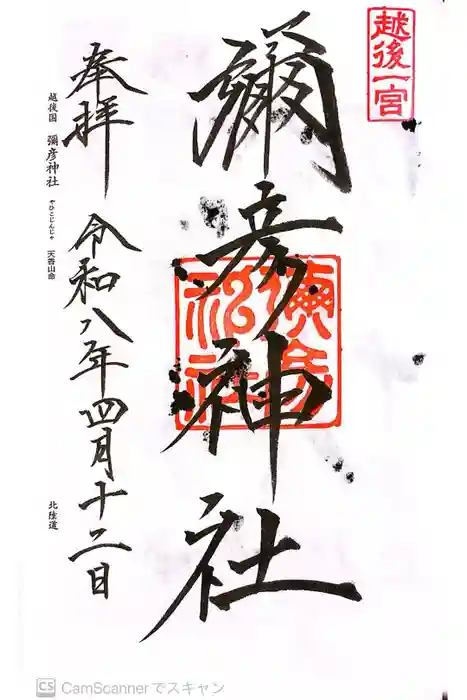 越後一宮
彌彦神社
彌彦神社
奉拝
令和八年四月十二日
越後国 彌彦神社 やひこじんじゃ 天香山命
北陸道
CS CamScannerでスキャン